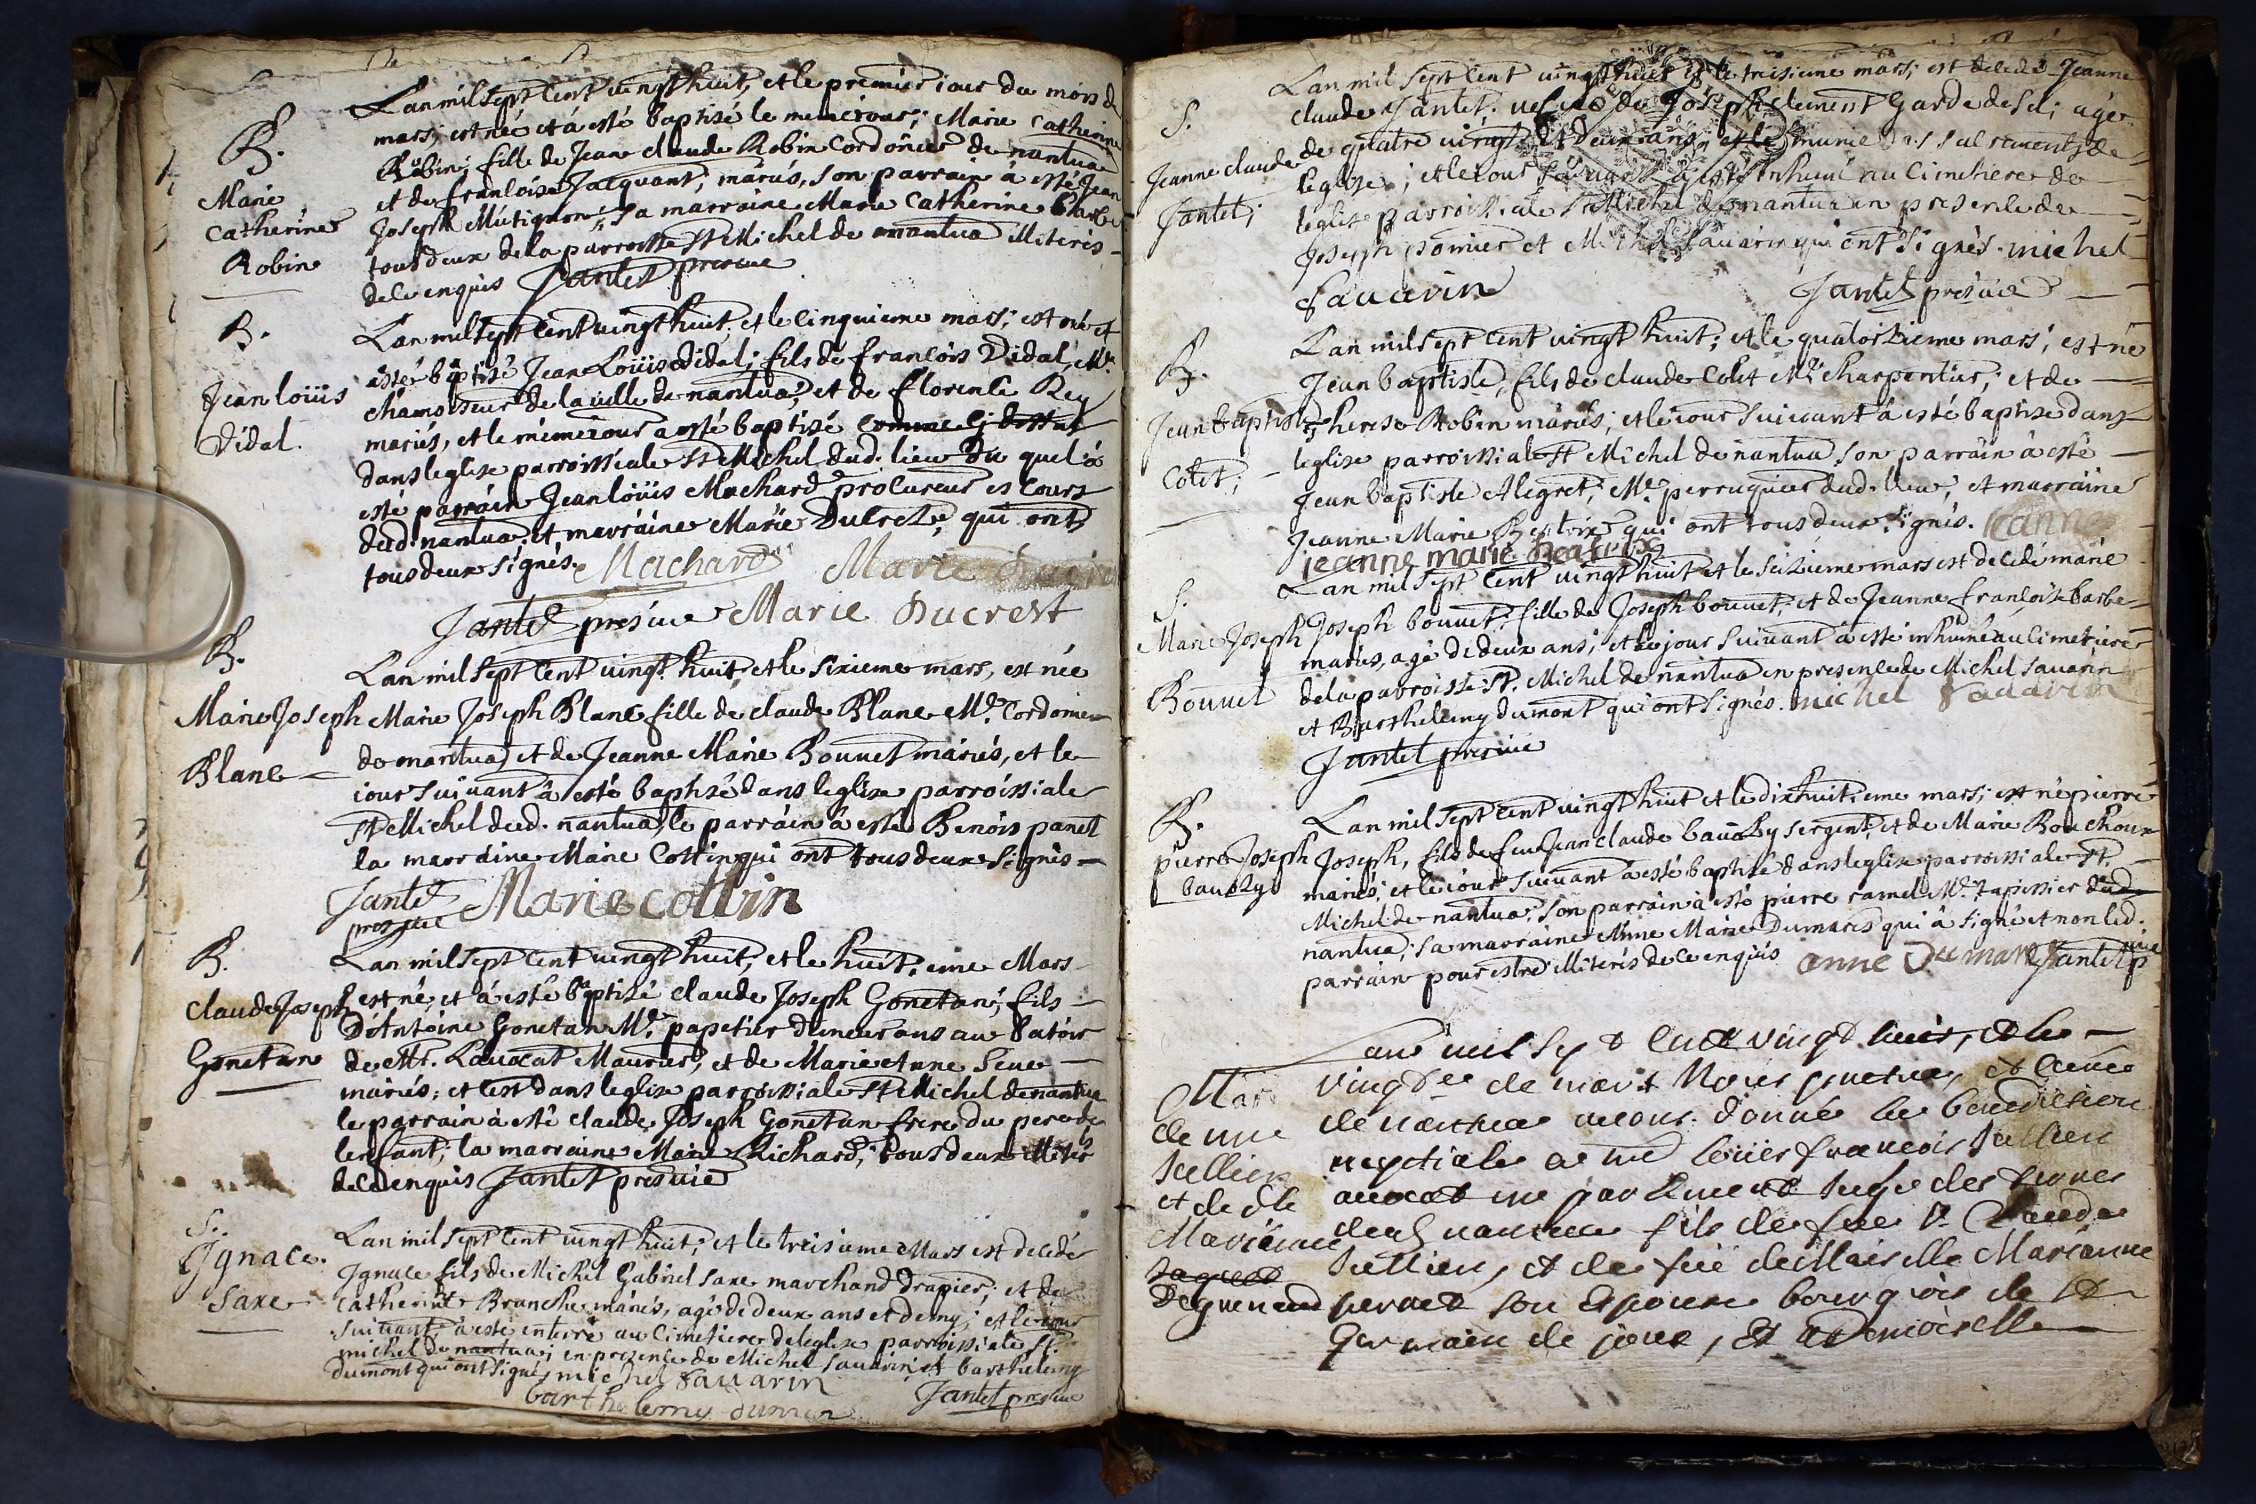 B.
Marie
Catherine
Robin
Lan mil sept Cent vingt huit, et le premier iour du mois de
mars, est née et à esté baptisé le meme iour; Marie Catherine
Robin; fille de Jean claude Robin Cordonier de nantua
et de francoise Jacquant, mariés, son parrain à esté Jean
Joseph Mutignon; sa marraine Marie Catherine
tous deux de la parroisse st Michel de nantua illiteris
de ce enquis Jantet presvic
B.
Jean loüis
Didal.
Lan mil sept Cent vingt huit, et le Cinquieme mars; est né et
àsté baptisé Jean Loüis Didal; fils de francois Didal, Me.
chamoiseur de la ville de nantua, et de florence Rey
mariés, et le meme iour a esté baptisé comme cj dessus
dans leglise parroissiale st Michel dud. lieu du quel à
esté parrain Jean loüis Machard procureur es Cours
dud. nantua, et marraine Marie Ducret, qui ont
tous deux signés. Machard Marie
Jantet presvic Marie Ducrest
B.
Marie Joseph
Blanc
Lan mil sept Cent vingt huit, et le sixieme mars, est née
Marie Joseph Blanc fille de claude Blanc Me. Cordonier
de nantua, et de Jeanne Marie Bouvet mariés, et le
iour suivant à esté baptisé dans leglise parroissiale
st Michel dud. nantua, le parrain à esté Benois panet
la marraine Marie Cottin qui ont tous deux signés
Jantet Marie cottin
presvic
B.
Claude Joseph
Gonetan
Lan mil sept Cent vingt huit, et le huit.ieme Mars
est né, et à esté baptisé claude Joseph Gonetan, fils
D'Antoine Gonetan Me. papetier demeurans au Batoir
de Mr. Lavocat Maurier, et de Marie Anne Seve
mariés; et Cest dans leglise parroissiale st Michel de nantua
le parrain à esté claude Joseph Gonetan frere du pere de
lenfant, la marraine Marie Richard, tous deux illiter
de ce enquis Jantet presvic
S.
Ignace.
Saxe
Lan mil sept Cent vingt huit; et le treisieme Mars est decedé
Ignace fils de Michel Gabriel Saxe marchand Drapier, et de
Catherine Brunche mariés, agé de deux ans et demy; et le iour
suivant à esté enterré au Cimetiere de leglise parroissiale st.
michel de nantua; en presence de Michel Savarin, et barthelemy
dumont qui ont signés michel Savarin
barthelemy dumon Jantet presvic
S.
Jeanne claude
Jantet;
Lan mil sept Cent vingt huit et le treisieme mars; est decedé Jeanne
claude Jantet; vefve de Joseph clement Garde de sel; agée
de quatre vingt et deux ans, et le munie des sacrements de
leglise; et le iour suivant à esté inhumé au Cimetiere de
leglise parroissiale st Michel de nantua en presence de
Joseph pomier et Michel Savarin qui ont signés. michel
Savarin Jantet presvic
B.
Jean baptiste
Colet;
Lan mil sept Cent vingt huit; et le quatorzieme mars; est né
Jean baptiste, fils de claude Colet Me. charpentier, et de
therese Robin mariés; et le iour suivant à esté baptisé dans
leglise parroissiale st Michel de nantua, son parrain à esté
Jean baptiste Alegret, Me. perruquier dud. lieu, et marraine
Jeanne Marie qui ont tous deux signés. Jeanne
jeanne marie beatrix
S.
Marie Joseph
Bouvet
Lan mil sept Cent vingt huit et le seizieme mars est decedé marie
Joseph bouvet, fille de Joseph bouvet, et de Jeanne francoise barbe
mariés, agé de deux ans; et le jour suivant à esté inhumé au Cimetiere
de la parroisse st. Michel de nantua en presence de Michel Savarin
et Barthelemy dumont qui ont signés. michel Savarin
Jantet presvic
B.
pierre Joseph
Lan mil sept Cent vingt huit et le dix huit.ieme mars; est né pierre
Joseph, fils de feu Jean claude sergent, et de Marie Bouchoux
mariés; et le iour suivant à esté baptisé dans leglise parroissiale st.
Michel de nantua; son parrain à esté pierre ramel Me. tapissier dud.
nantua; sa marraine Anne Marie Dumarés qui à signé et non led.
parrain pour estre illiteris de ce enquis anne Du mares Jantet p vic
Mar
de mr
Jullien
et de dlle
Marianne
Deguenend
Lan mil sept Cent vingt huit, et le
vingt de mars Nous pretre, et
de nantua avons donné la benediction
nuptiale a mr loüis francois Jullien
avocat en parlement Juge des terres
de nantua fils de feu Sr Claude
Jullien, et de feüe demoiselle Marianne
pernet son Epouse bourgeois de St
Germain de joux, Et Demoiselle